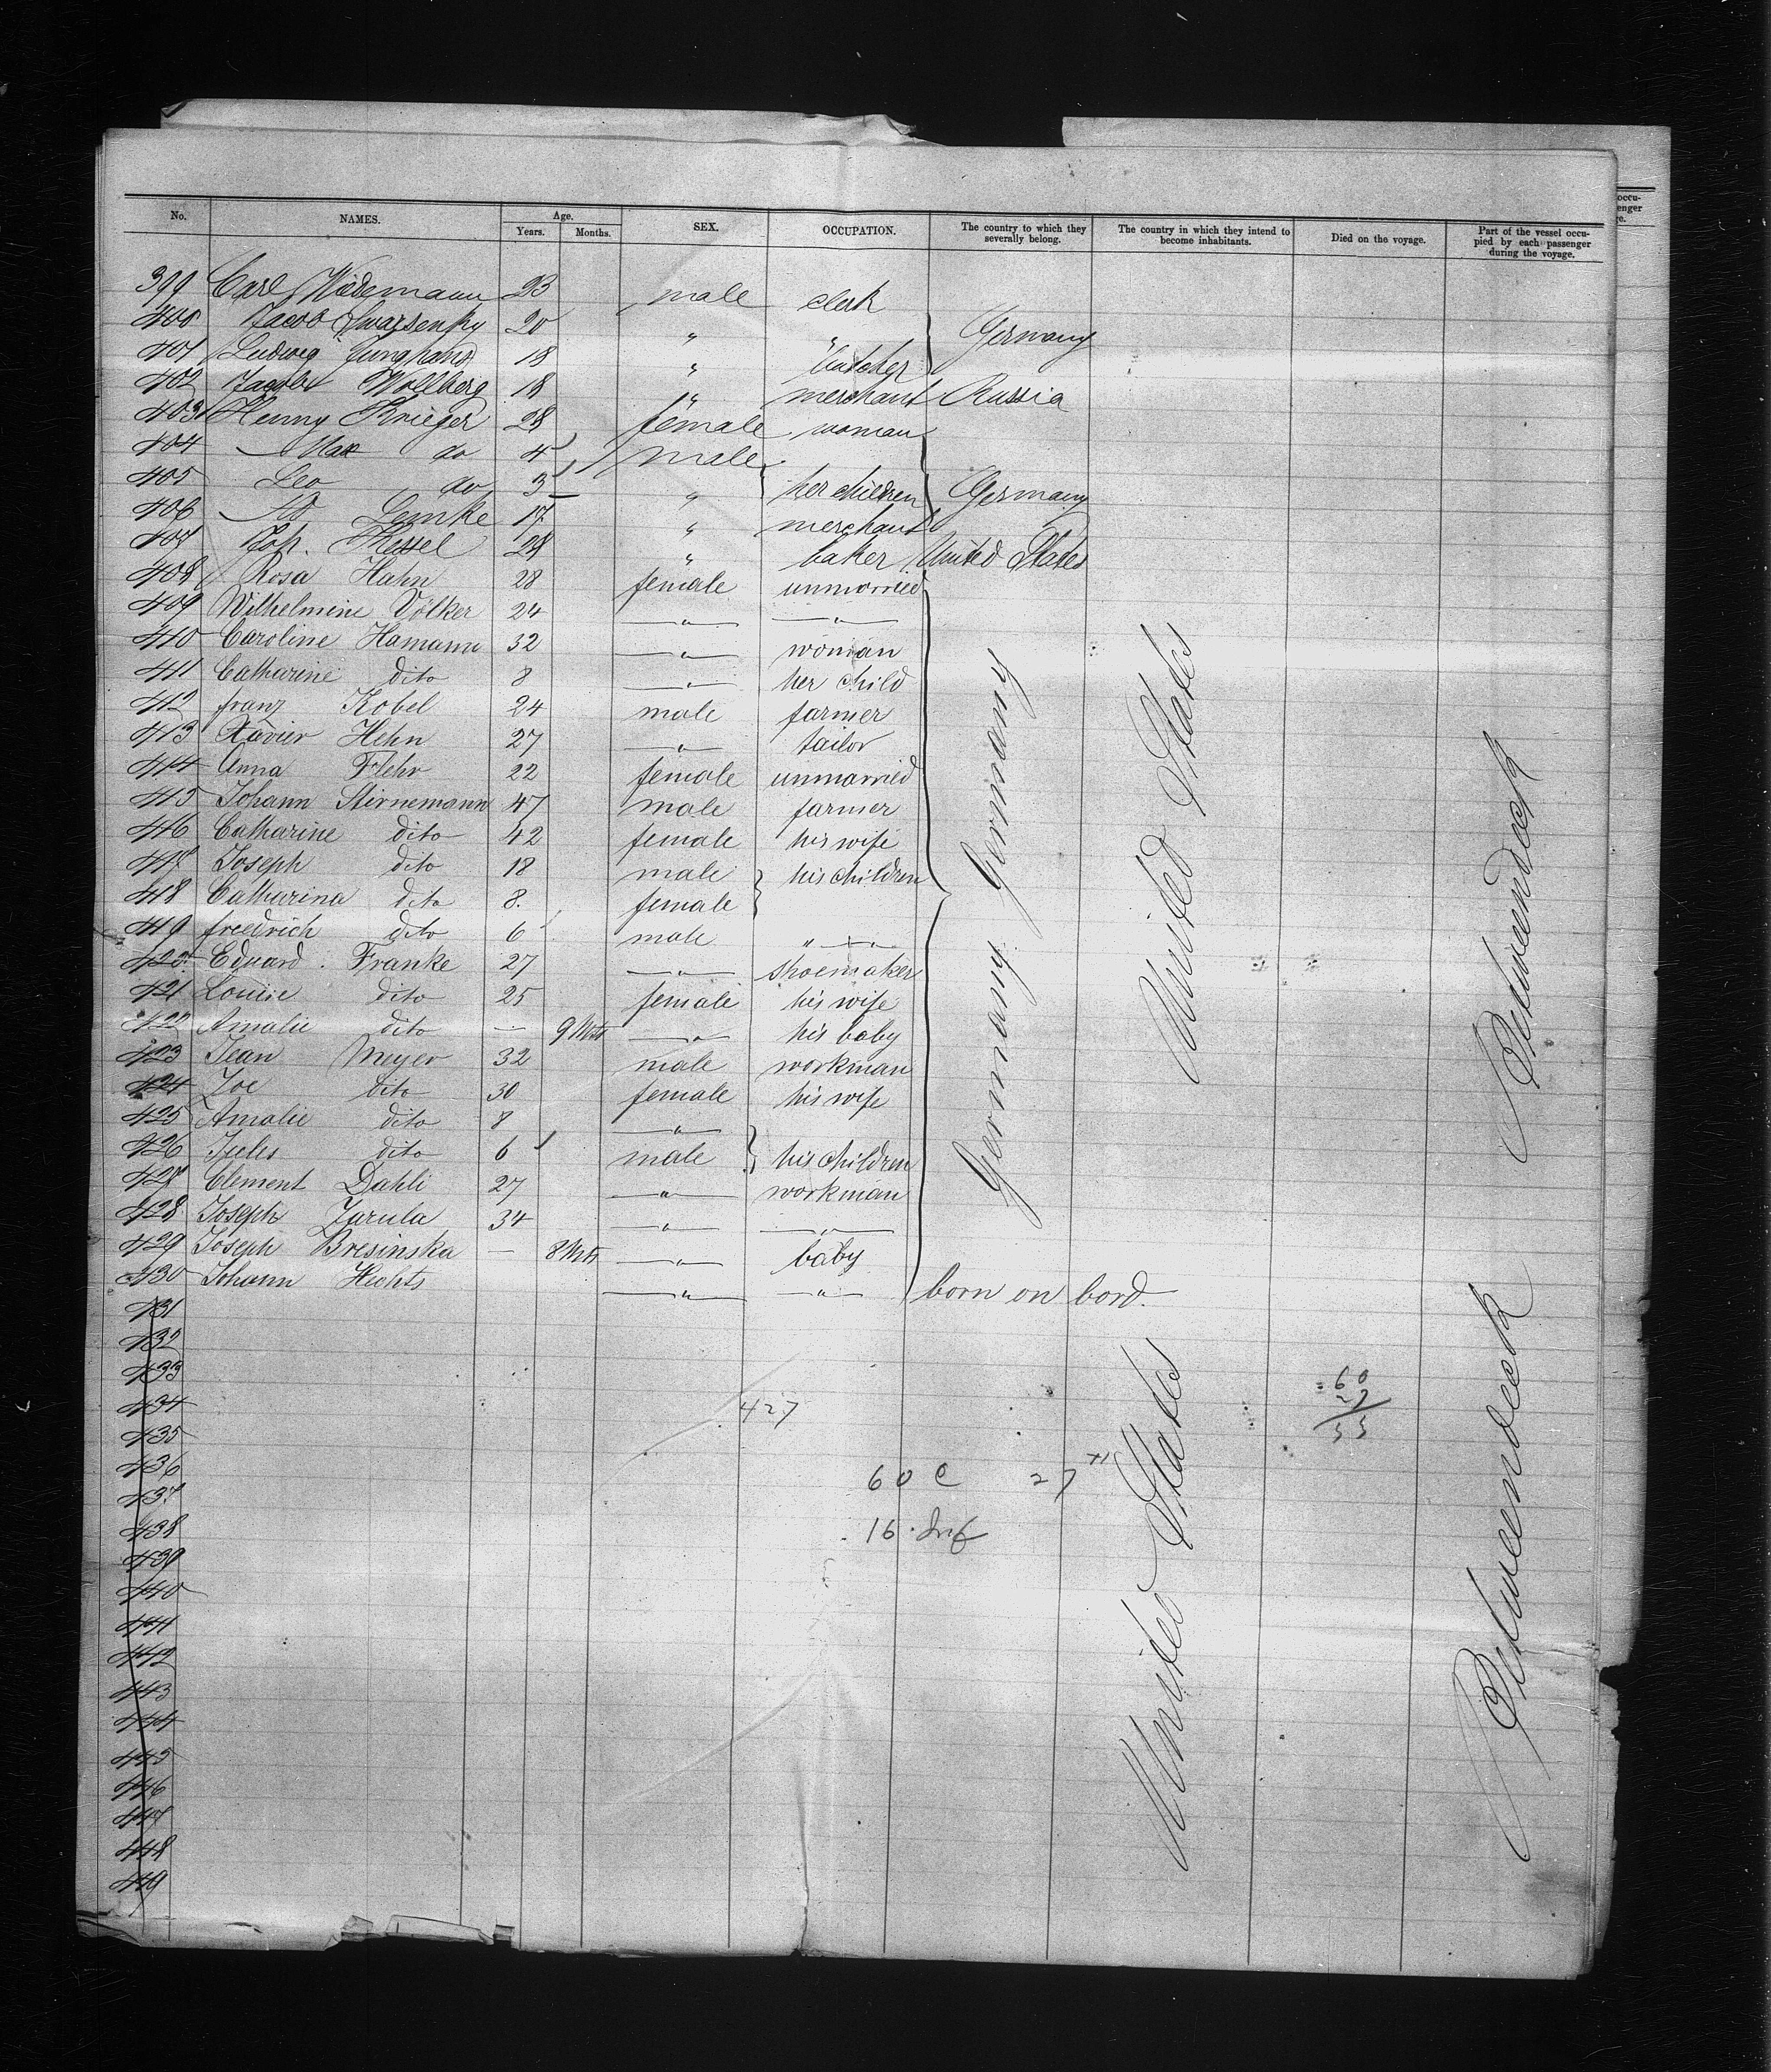 No. NAMES. Age. Years. Months. SEX. OCCUPATION. The country to which they severally belong. The country in which they intend to become inhabitants. Died on the voyage. Part of the vessel occupied by each passenger during the voyage.
occu-
enger
e.
399 Carl Wiedemann 23 male clerk
400 Jacob Swarsensky 20 " " Germany
401 Ludwig Junghans 18 " butcher
402 Jacob Wollberg 18 " merchant Russia
403 Henny Krieger 28 female woman
404 Max do 4 male
405 Leo do 3 " her children Germany
406 Lemke 17 " merchant
407 Joh. Kessel 28 " baker United States
408 Rosa Hahn 28 female unmarried
409 Wilhelmine Völker 24 " "
410 Caroline Hamann 32 " woman
411 Catharine dito 8 " her child
412 franz Kobel 24 male farmer
413 Xavier Hehn 27 " tailor
414 Anna Flehr 22 female unmarried
415 Johann Stirnemann 47 male farmer
416 Catharine dito 42 female his wife
417 Joseph dito 18 male his children
418 Catharina dito 8. female
419 freedrich dito 6 male " "
420 Eduard Franke 27 " shoemaker
421 Louise dito 25 female his wife
422 Amalie dito — 9 Mts " his baby
423 Jean Meyer 32 male workman
424 Zoe dito 30 female his wife
425 Amalie dito 8 "
426 Jules dito 6 male his children
427 Clement Dahli 27 " workman
428 Joseph Zarula 34 " "
429 Joseph Bresinska — 8 Mts " baby
430 Johann Hechts " " born on bord.
Germany Germany
United States
Betweendeck
431
432
433
434 427
435
436
437 60 C 27
438 16 inf
439
440
441
442
443
444
445
446
447
448
449
60
27
33
United States
Betweendeck